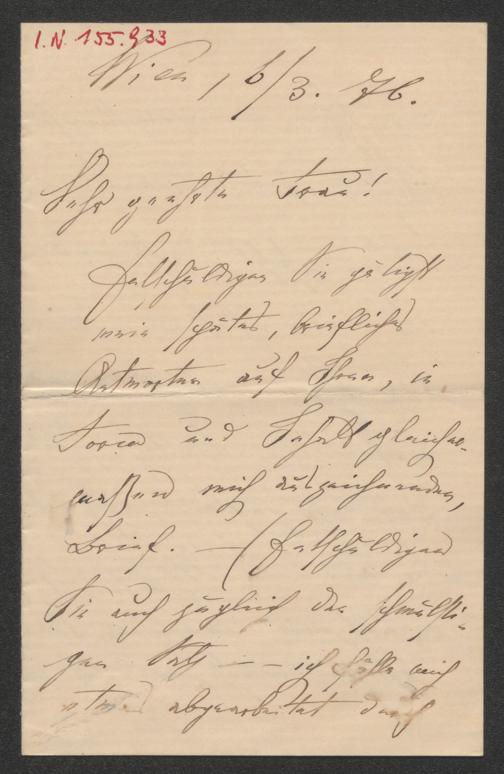 I.N. 155.933
Wien, 6/3. 76.
Sehr geehrte Frau!
Entschuldigen Sie gütigst
mein spätes, briefliches
Antworten auf Ihren, in
Form und Inhalt gleicher-
maßen mich auszeichnenden,
Brief. — (Entschuldigen
Sie auch zugleich den schwulsti-
gen Satz — — ich fühle mich
etwas abgearbeitet durch